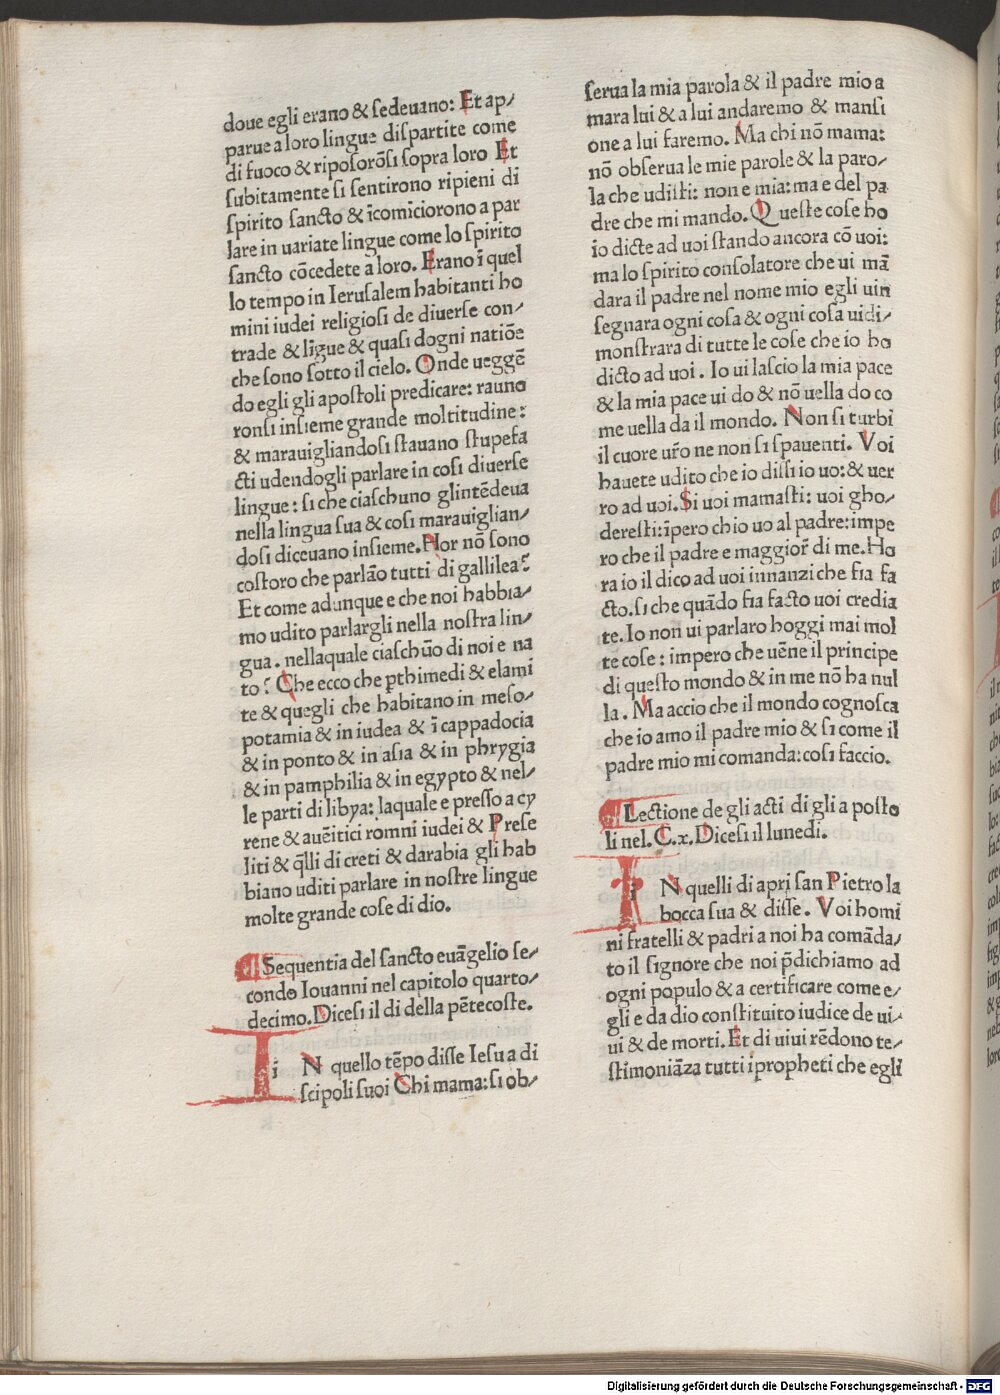 doue egli erano & sedeuano: Et ap/
parue a loro lingue dispartite come
di fuoco & riposorõsi sopra loro Et
subitamente si sentirono ripieni di
spirito sancto & ĩcomĩciorono a par
lare in uariate lingue come lo spirito
sancto cõcedete a loro. Erano ĩ quel
lo tempo in Ierusalem habitanti ho
mini iudei religiosi de diuerse con/
trade & lĩgue & quasi dogni natiõe
che sono sotto il cielo. Onde ueggẽ
do egli gli apostoli predicare: rauno
ronsi insieme grande moltitudine:
& marauigliandosi stauano stupefa
cti udendogli parlare in cosi diuerse
lingue: si che ciaschuno glintẽdeua
nella lingua sua & cosi marauiglian/
dosi diceuano insieme. Hor nõ sono
costoro che parlão tutti di gallilea?
Et come adunque e che noi habbia/
mo udito parlargli nella nostra lin/
gua. nellaquale ciaschũo di noi e na
to? Che ecco che pthimedi & elami
te & quegli che habitano in meso/
potamia & in iudea & ĩ cappadocia
& in ponto & in asia & in phrygia
& in pamphilia & in egypto & nel/
le parti di libya: laquale e presso a cy
rene & auẽitici romni iudei & Prese
liti & q̃lli di creti & darabia gli hab
biano uditi parlare in nostre lingue
molte grande cose di dio.
Sequentia del sancto euãgelio se/
condo Iouanni nel capitolo quarto/
decimo. Dicesi il di della pẽtecoste.
i N quello tẽpo disse Iesu a di
scipoli suoi Chi mama: si ob/
serua la mia parola & il padre mio a
mara lui & a lui andaremo & mansi
one a lui faremo. Ma chi nõ mama:
nõ obserua le mie parole & la paro/
la che udisti: non e mia: ma e del pa
dre che mi mando. Queste cose ho
io dicte ad uoi stando ancora cõ uoi:
ma lo spirito consolatore che ui mã
dara il padre nel nome mio egli uin
segnara ogni cosa & ogni cosa uidi/
monstrara di tutte le cose che io ho
dicto ad uoi. Io ui lascio la mia pace
& la mia pace ui do & nõ uella do co
me uella da il mondo. Non si turbi
il cuore ur̃o ne non si spauenti. Voi
hauete udito che io dissi io uo: & uer
ro ad uoi. Si uoi mamasti: uoi gho/
deresti: ĩpero chio uo al padre: impe
ro che il padre e maggior̃ di me. Ho
ra io il dico ad uoi innanzi che fia fa
cto. si che quãdo fia facto uoi credia
te. Io non ui parlaro hoggi mai mol
te cose: impero che uẽne il principe
di questo mondo & in me nõ ha nul
la. Ma accio che il mondo cognosca
che io amo il padre mio & si come il
padre mio mi comanda: cosi faccio.
Lectione de gli acti di gli aposto
li nel. C.x. Dicesi il lunedi.
i N quelli di apri san Pietro la
bocca sua & disse. Voi homi
ni fratelli & padri a noi ha comãda/
to il signore che noi p̃dichiamo ad
ogni populo & a certificare come e/
gli e da dio constituito iudice de ui/
ui & de morti. Et di uiui rẽdono te/
stimoniãza tutti i propheti che egli
Digitalisierung gefördert durch die Deutsche Forschungsgemeinschaft - DFG